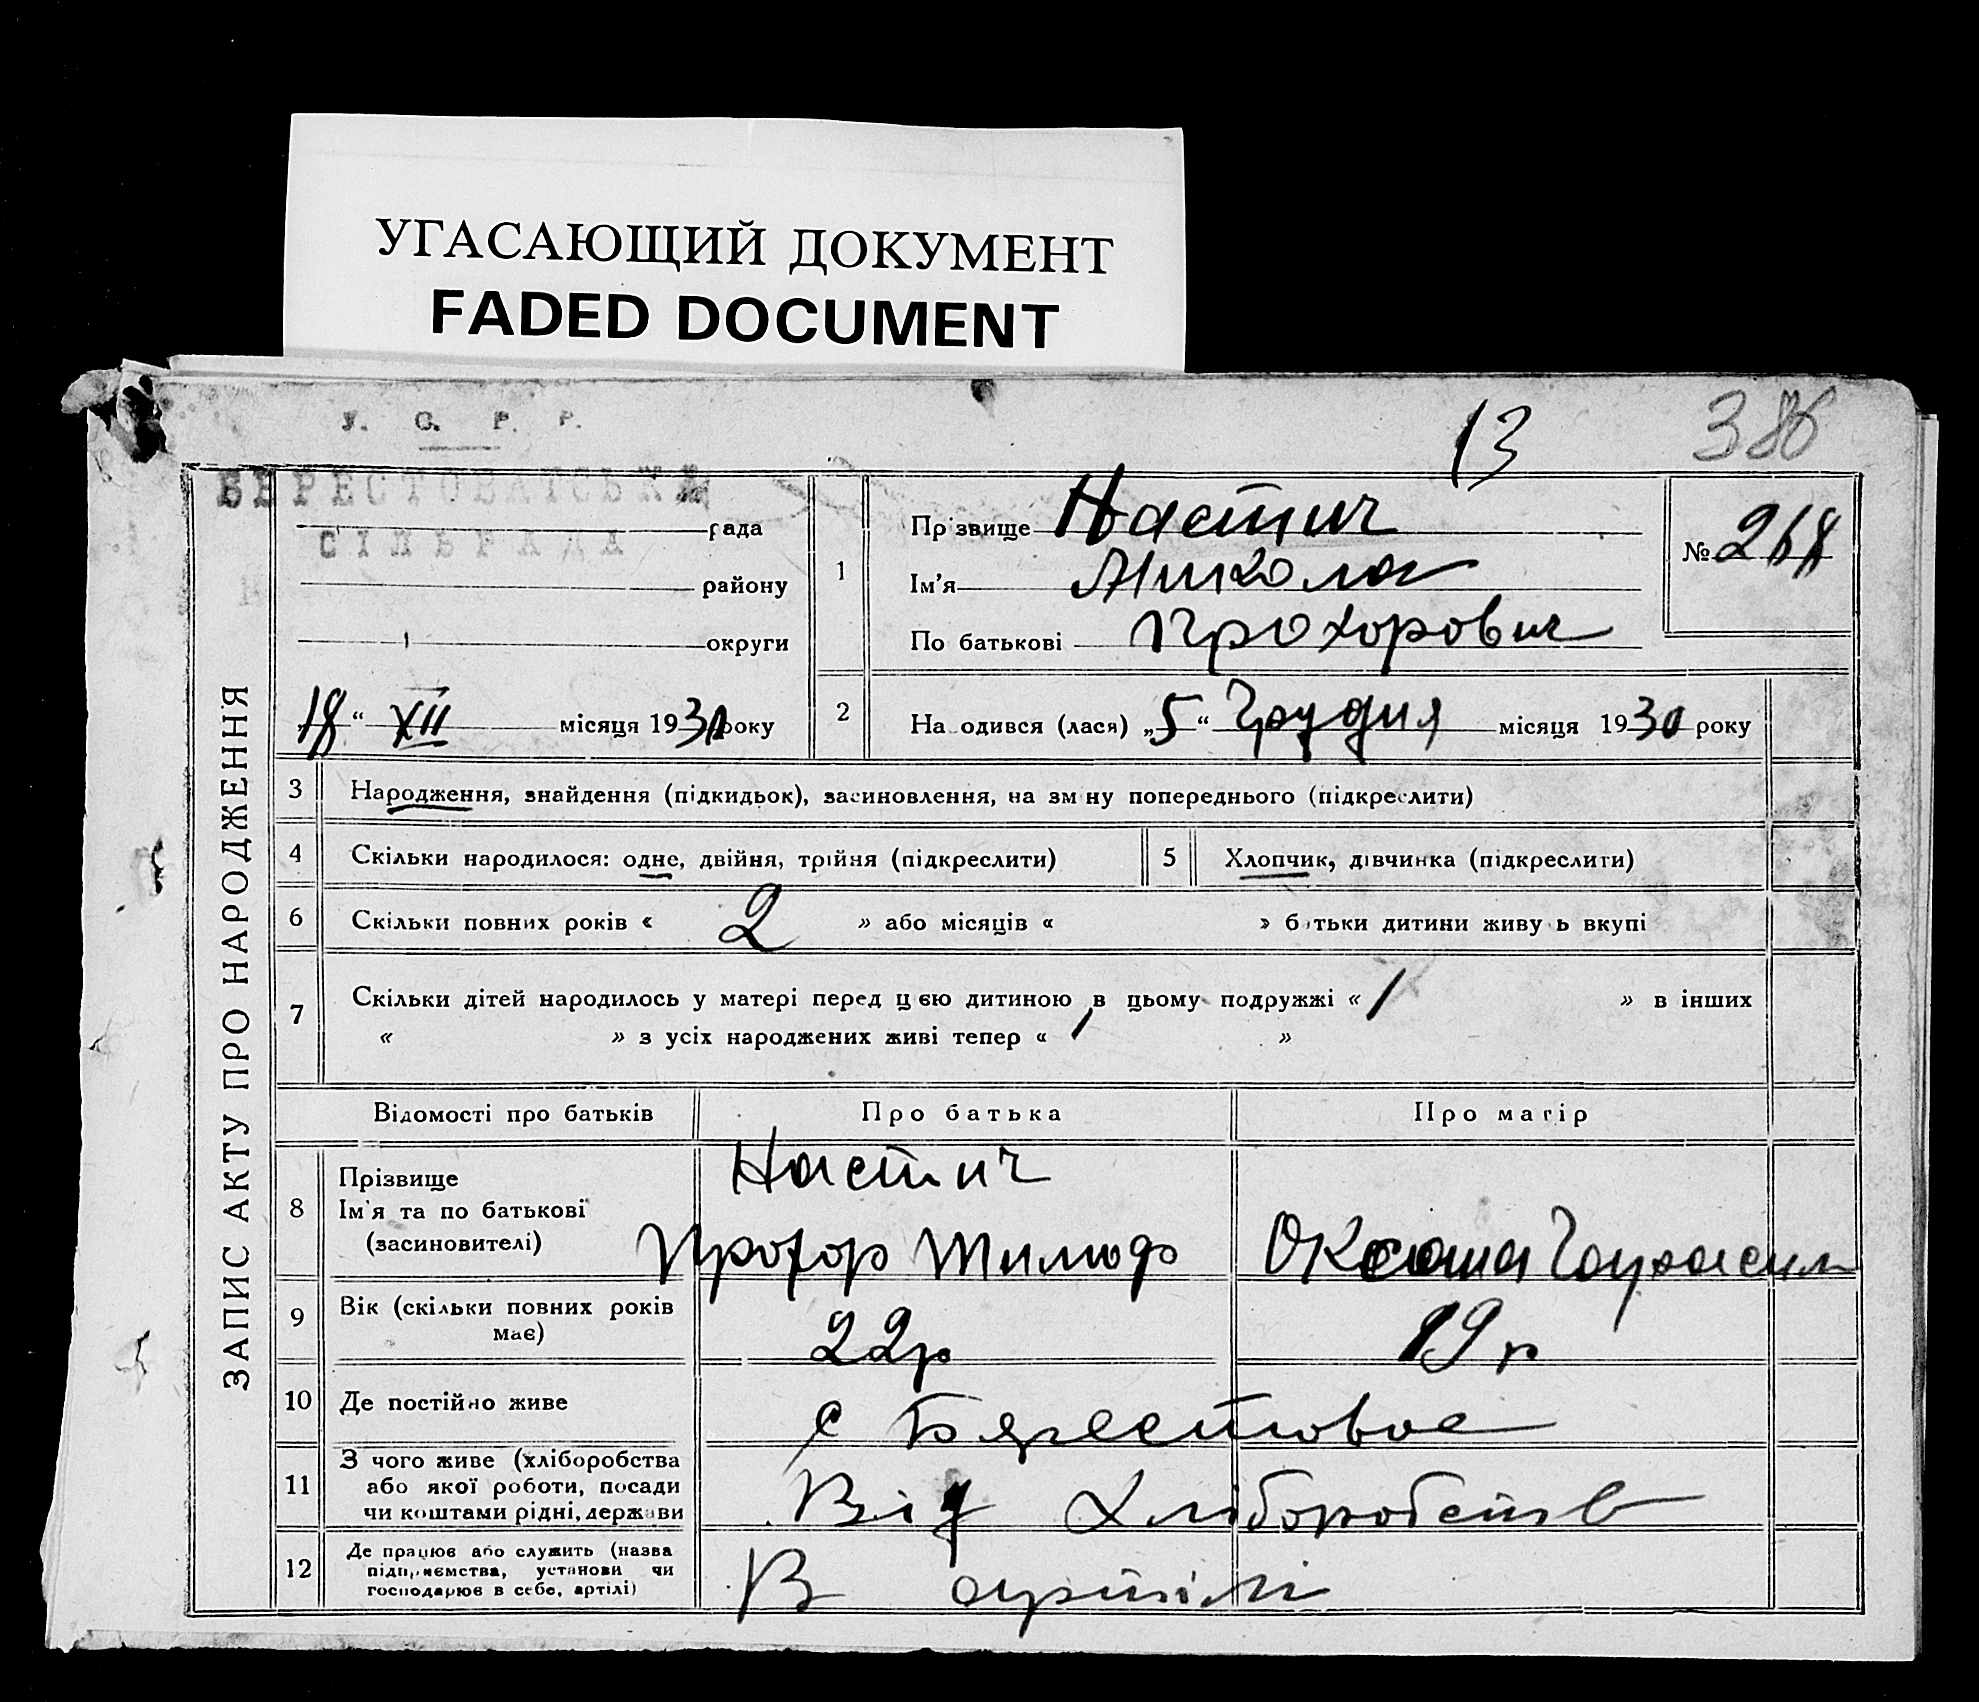 УГАСАЮЩИЙ ДОКУМЕНТ
FADED DOCUMENT
У. С. Р. Р.
БЕРЕСТОВАТСЬКА
СІЛЬРАДА
13
386
ЗАПИС АКТУ ПРО НАРОДЖЕННЯ
рада
району
округи
18 “ XII місяця 1930 року
1
Прізвище Настич
Ім’я Микола
По батькові Прохорович
№ 268
2
На одився (лася) „5“ Грудня місяця 1930 року
3 Народження, знайдення (підкидьок), засиновлення, на зм ну попереднього (підкреслити)
4 Скільки народилося: одне, двійня, трійня (підкреслити)
5 Хлопчик, дівчинка (підкреслити)
6 Скільки повних років « 2 » або місяців « » б тьки дитини живу ь вкупі
7 Скільки дітей народилось у матері перед цєю дитиною в цьому подружжі « 1 » в інших
« » з усіх народжених живі тепер « 1 »
Відомості про батьків Про батька Про матір
8 Прізвище
Ім’я та по батькові
(засиновителі)
Настич
Прохор Тимоф Оксана Гарасим
9 Вік (скільки повних років
має)
22р 19р
10 Де постійно живе
с Берестовое
11 З чого живе (хліборобства
або якої роботи, посади
чи коштами рідні, держави
Від хліборобств
12 Де працює або служить (назва
підприємства, установи чи
господарює в себе, артілі)
В артілі